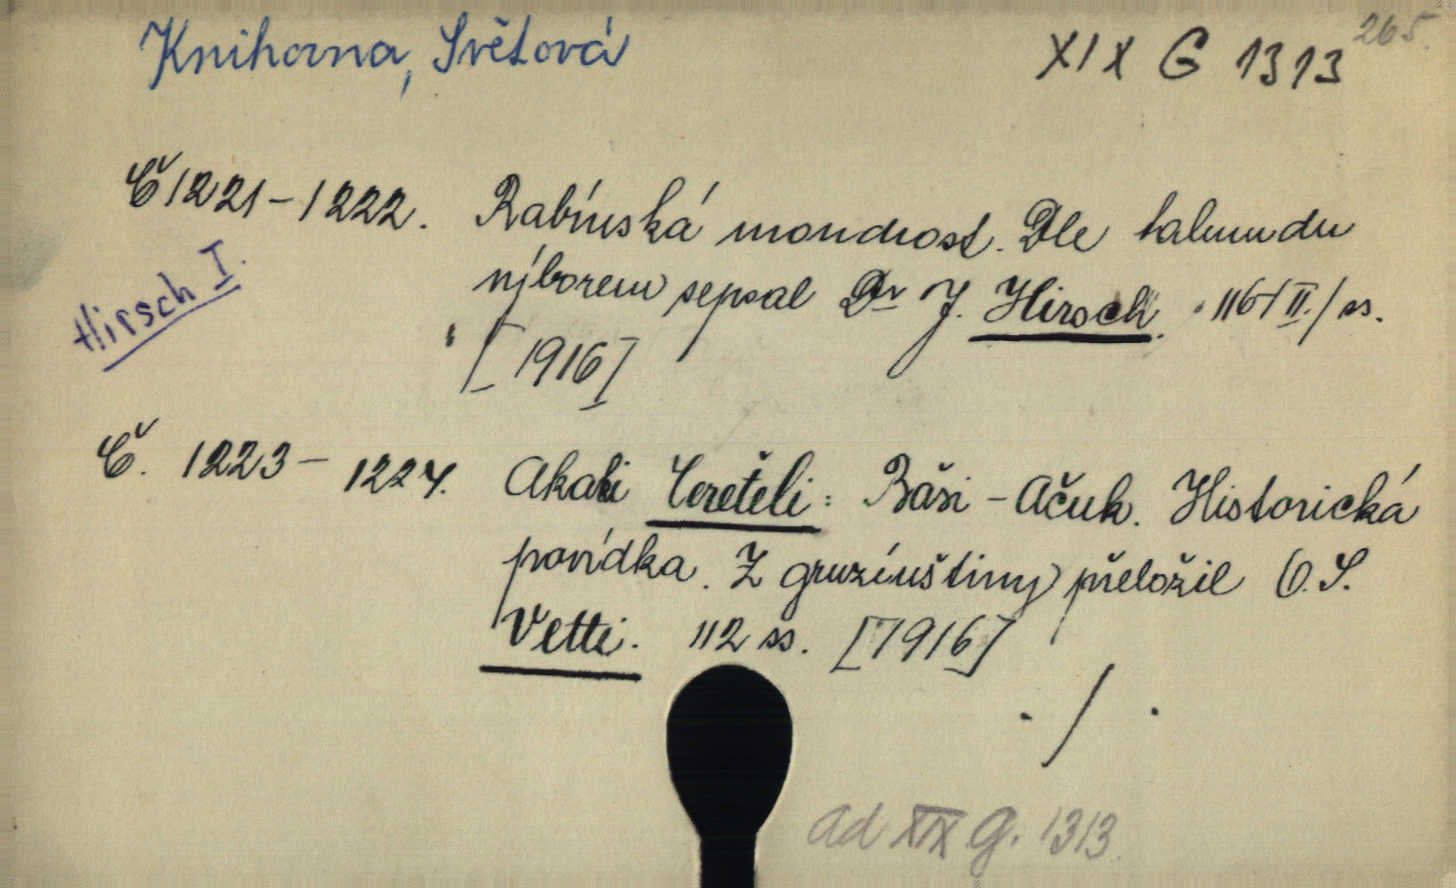 Knihovna, Světová
XIX G 1313
265.
Č 1221-1222. Rabínská moudrost. Dle talmudu
výborem sepsal Dr J. Hirsch. 116/II./ss.
Hirsch I.
[1916]
Č. 1223-1224. Akaki Cereteli: Báši-Ačuk. Historická
povídka. Z gruzínštiny přeložil O.S.
Vetti. 112 ss. [1916]
./.
ad XIX G. 1313.